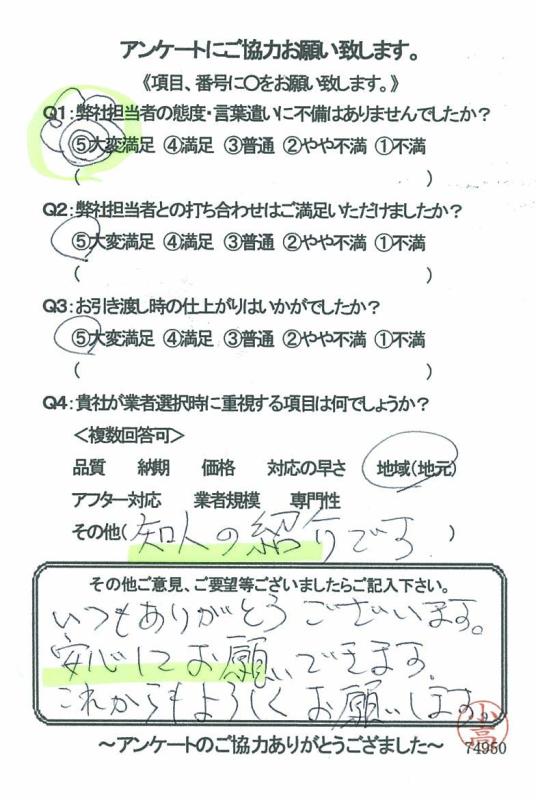 アンケートにご協力お願い致します。
《項目、番号に〇をお願い致します。》
Q1:弊社担当者の態度・言葉遣いに不備はありませんでしたか?
⑤大変満足 ④満足 ③普通 ②やや不満 ①不満
( )
Q2:弊社担当者との打ち合わせはご満足いただけましたか?
⑤大変満足 ④満足 ③普通 ②やや不満 ①不満
( )
Q3:お引き渡し時の仕上がりはいかがでしたか?
⑤大変満足 ④満足 ③普通 ②やや不満 ①不満
( )
Q4:貴社が業者選択時に重視する項目は何でしょうか?
<複数回答可>
品質 納期 価格 対応の早さ 地域(地元)
アフター対応 業者規模 専門性
その他(知人の紹介です)
その他ご意見、ご要望等ございましたらご記入下さい。
いつもありがとうございます。
安心してお願いできます。
これからもよろしくお願いします。
小高
~アンケートのご協力ありがとうござました~ 74950